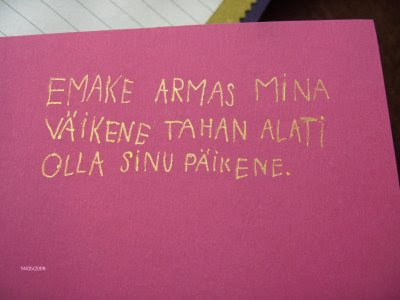 EMAKE ARMAS MINA
VÄIKENE TAHAN ALATI
OLLA SINU PÄIKENE.
14/05/2009